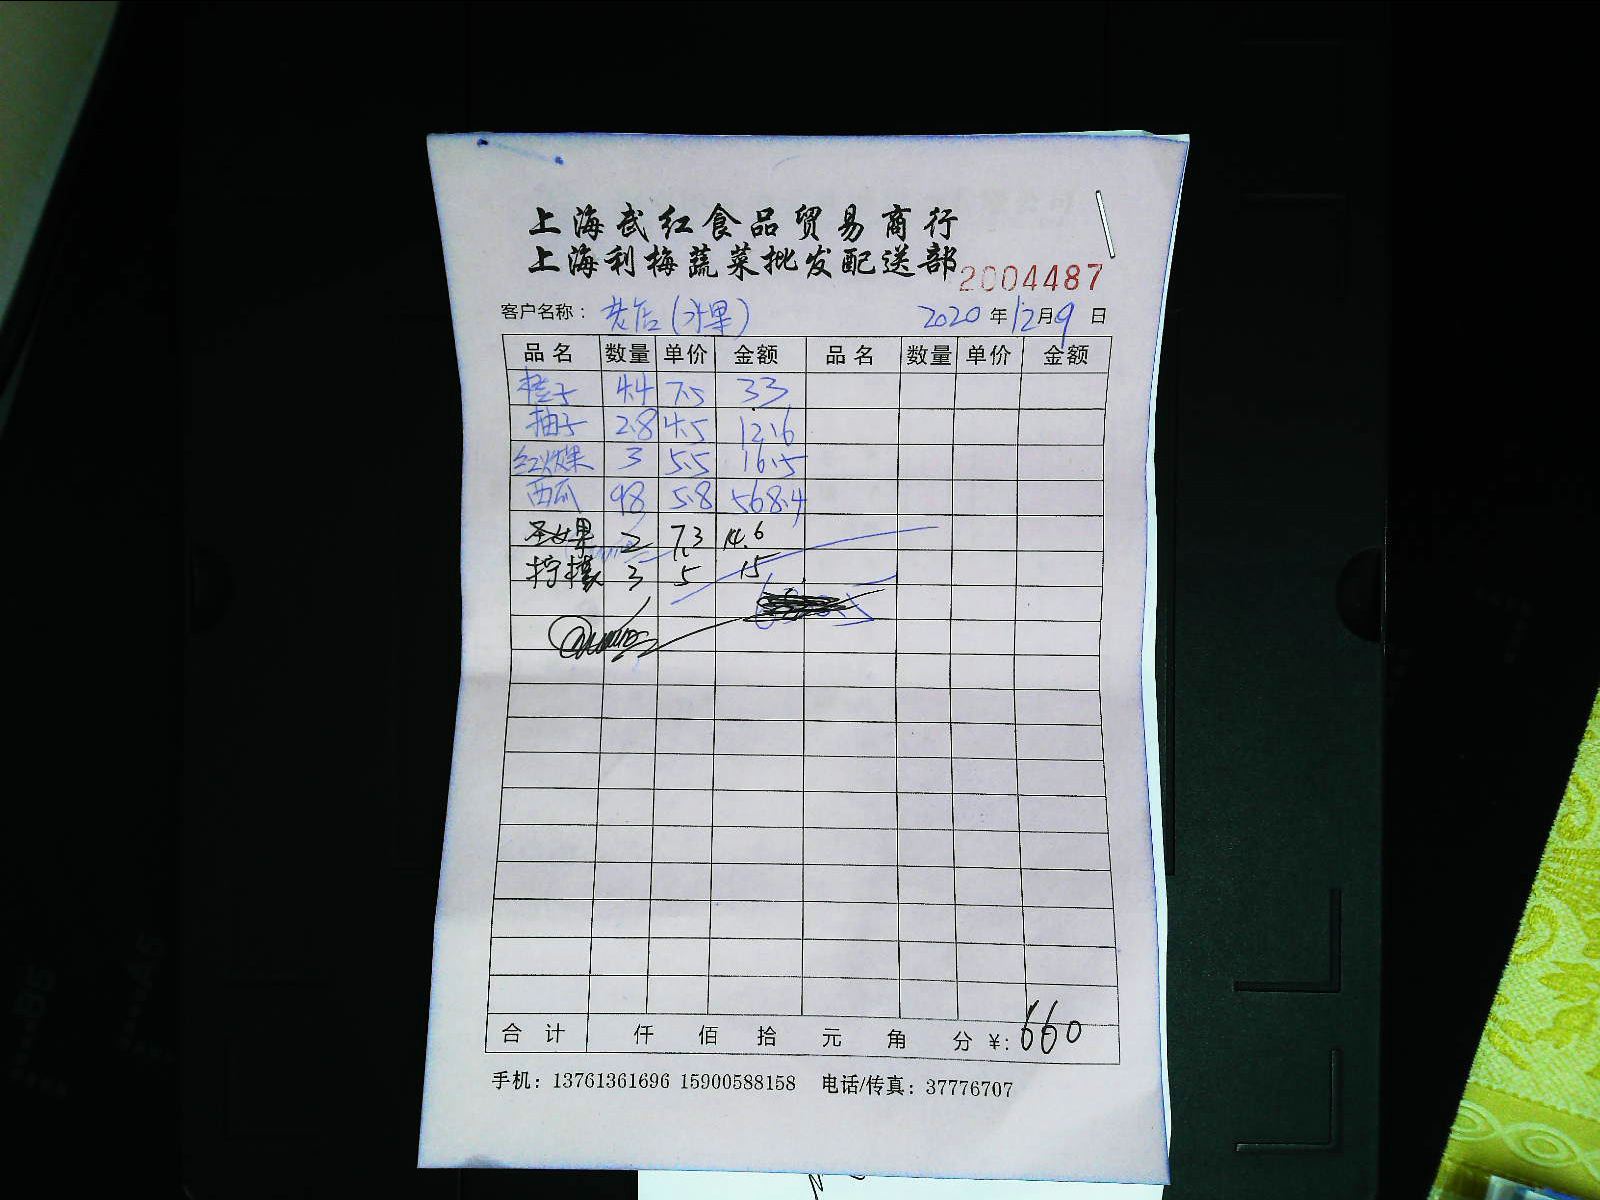 上海武红食品贸易商行
上海利梅蔬菜批发配送部
2004487
客户名称： 老店（水果） 2020 年 12 月 9 日
品名 数量 单价 金额 品名 数量 单价 金额
橙子 4.4 7.5 33
柚子 2.8 4.5 12.6
红火龙果 3 5.5 16.5
西瓜 98 5.8 568.4
圣女果 2 7.3 14.6
柠檬 3 5 15
合计 仟 佰 拾 元 角 分 ¥: 660
手机：13761361696 15900588158 电话/传真：37776707